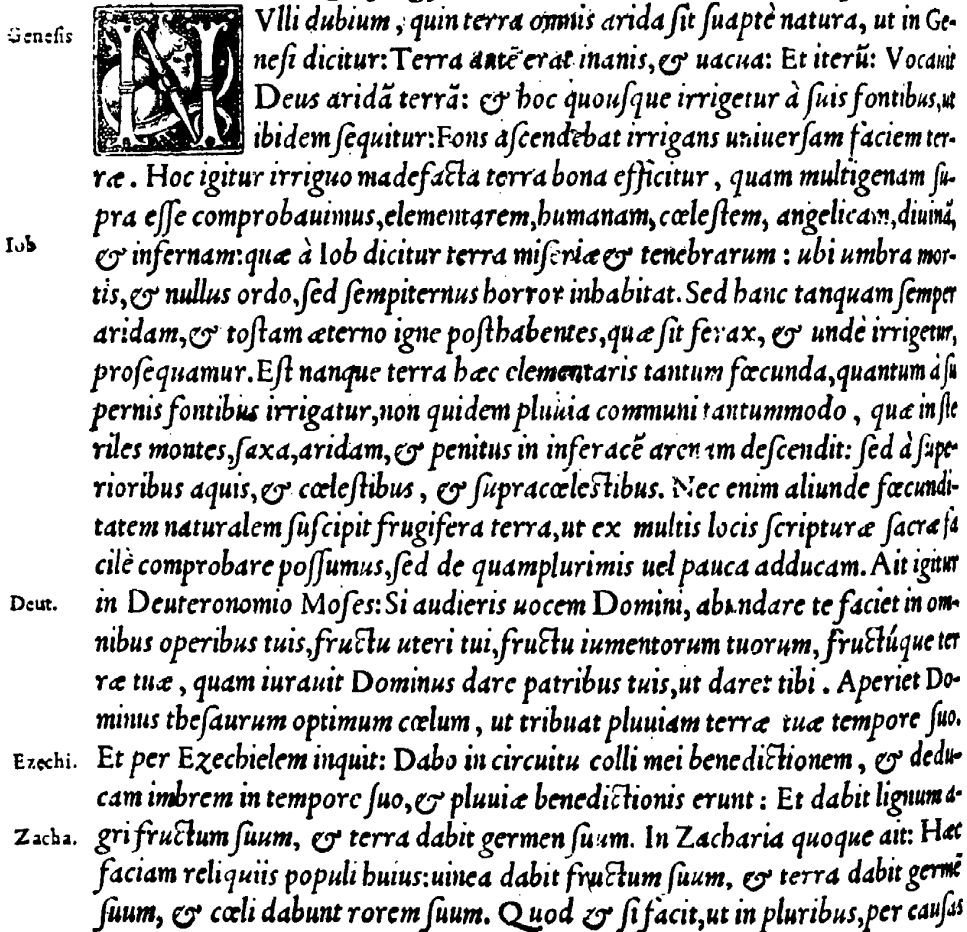 Genesis
NVlli dubium, quin terra omnis arida sit suaptè natura, ut in Ge-
nesi dicitur: Terra autē erat inanis, & uacua: Et iterū: Vocauit
Deus aridā terrā: & hoc quousque irrigetur à suis fontibus, ut
ibidem sequitur: Fons ascendebat irrigans uniuersam faciem ter-
ræ. Hoc igitur irriguo madefacta terra bona efficitur, quam multigenam su-
pra esse comprobauimus, elementarem, humanam, cœlestem, angelicam, diuinā,
Iob
& infernam: quæ à Iob dicitur terra miseriæ & tenebrarum: ubi umbra mor-
tis, & nullus ordo, sed sempiternus horror inhabitat. Sed hanc tanquam semper
aridam, & tostam æterno igne posthabentes, quæ sit ferax, & undè irrigetur,
prosequamur. Est nanque terra hæc elementaris tantum fœcunda, quantum à su
pernis fontibus irrigatur, non quidem pluuia communi tantummodo, quæ in ste
riles montes, saxa, aridam, & penitus in inferacē arenam descendit: sed à supe-
rioribus aquis, & cœlestibus, & supracœlestibus. Nec enim aliunde fœcundi-
tatem naturalem suscipit frugifera terra, ut ex multis locis scripturæ sacræ fa
cilè comprobare possumus, sed de quamplurimis uel pauca adducam. Ait igitur
Deut.
in Deuteronomio Moses: Si audieris uocem Domini, abundare te faciet in om-
nibus operibus tuis, fructu uteri tui, fructu iumentorum tuorum, fructúque ter
ræ tuæ, quam iurauit Dominus dare patribus tuis, ut daret tibi. Aperiet Do-
minus thesaurum optimum cœlum, ut tribuat pluuiam terræ tuæ tempore suo.
Ezechi.
Et per Ezechielem inquit: Dabo in circuitu colli mei benedictionem, & dedu-
cam imbrem in tempore suo, & pluuiæ benedictionis erunt: Et dabit lignum a-
Zacha.
gri fructum suum, & terra dabit germen suum. In Zacharia quoque ait: Hæc
faciam reliquiis populi huius: uinea dabit fructum suum, & terra dabit germē
suum, & cœli dabunt rorem suum. Quod & si facit, ut in pluribus, per causas